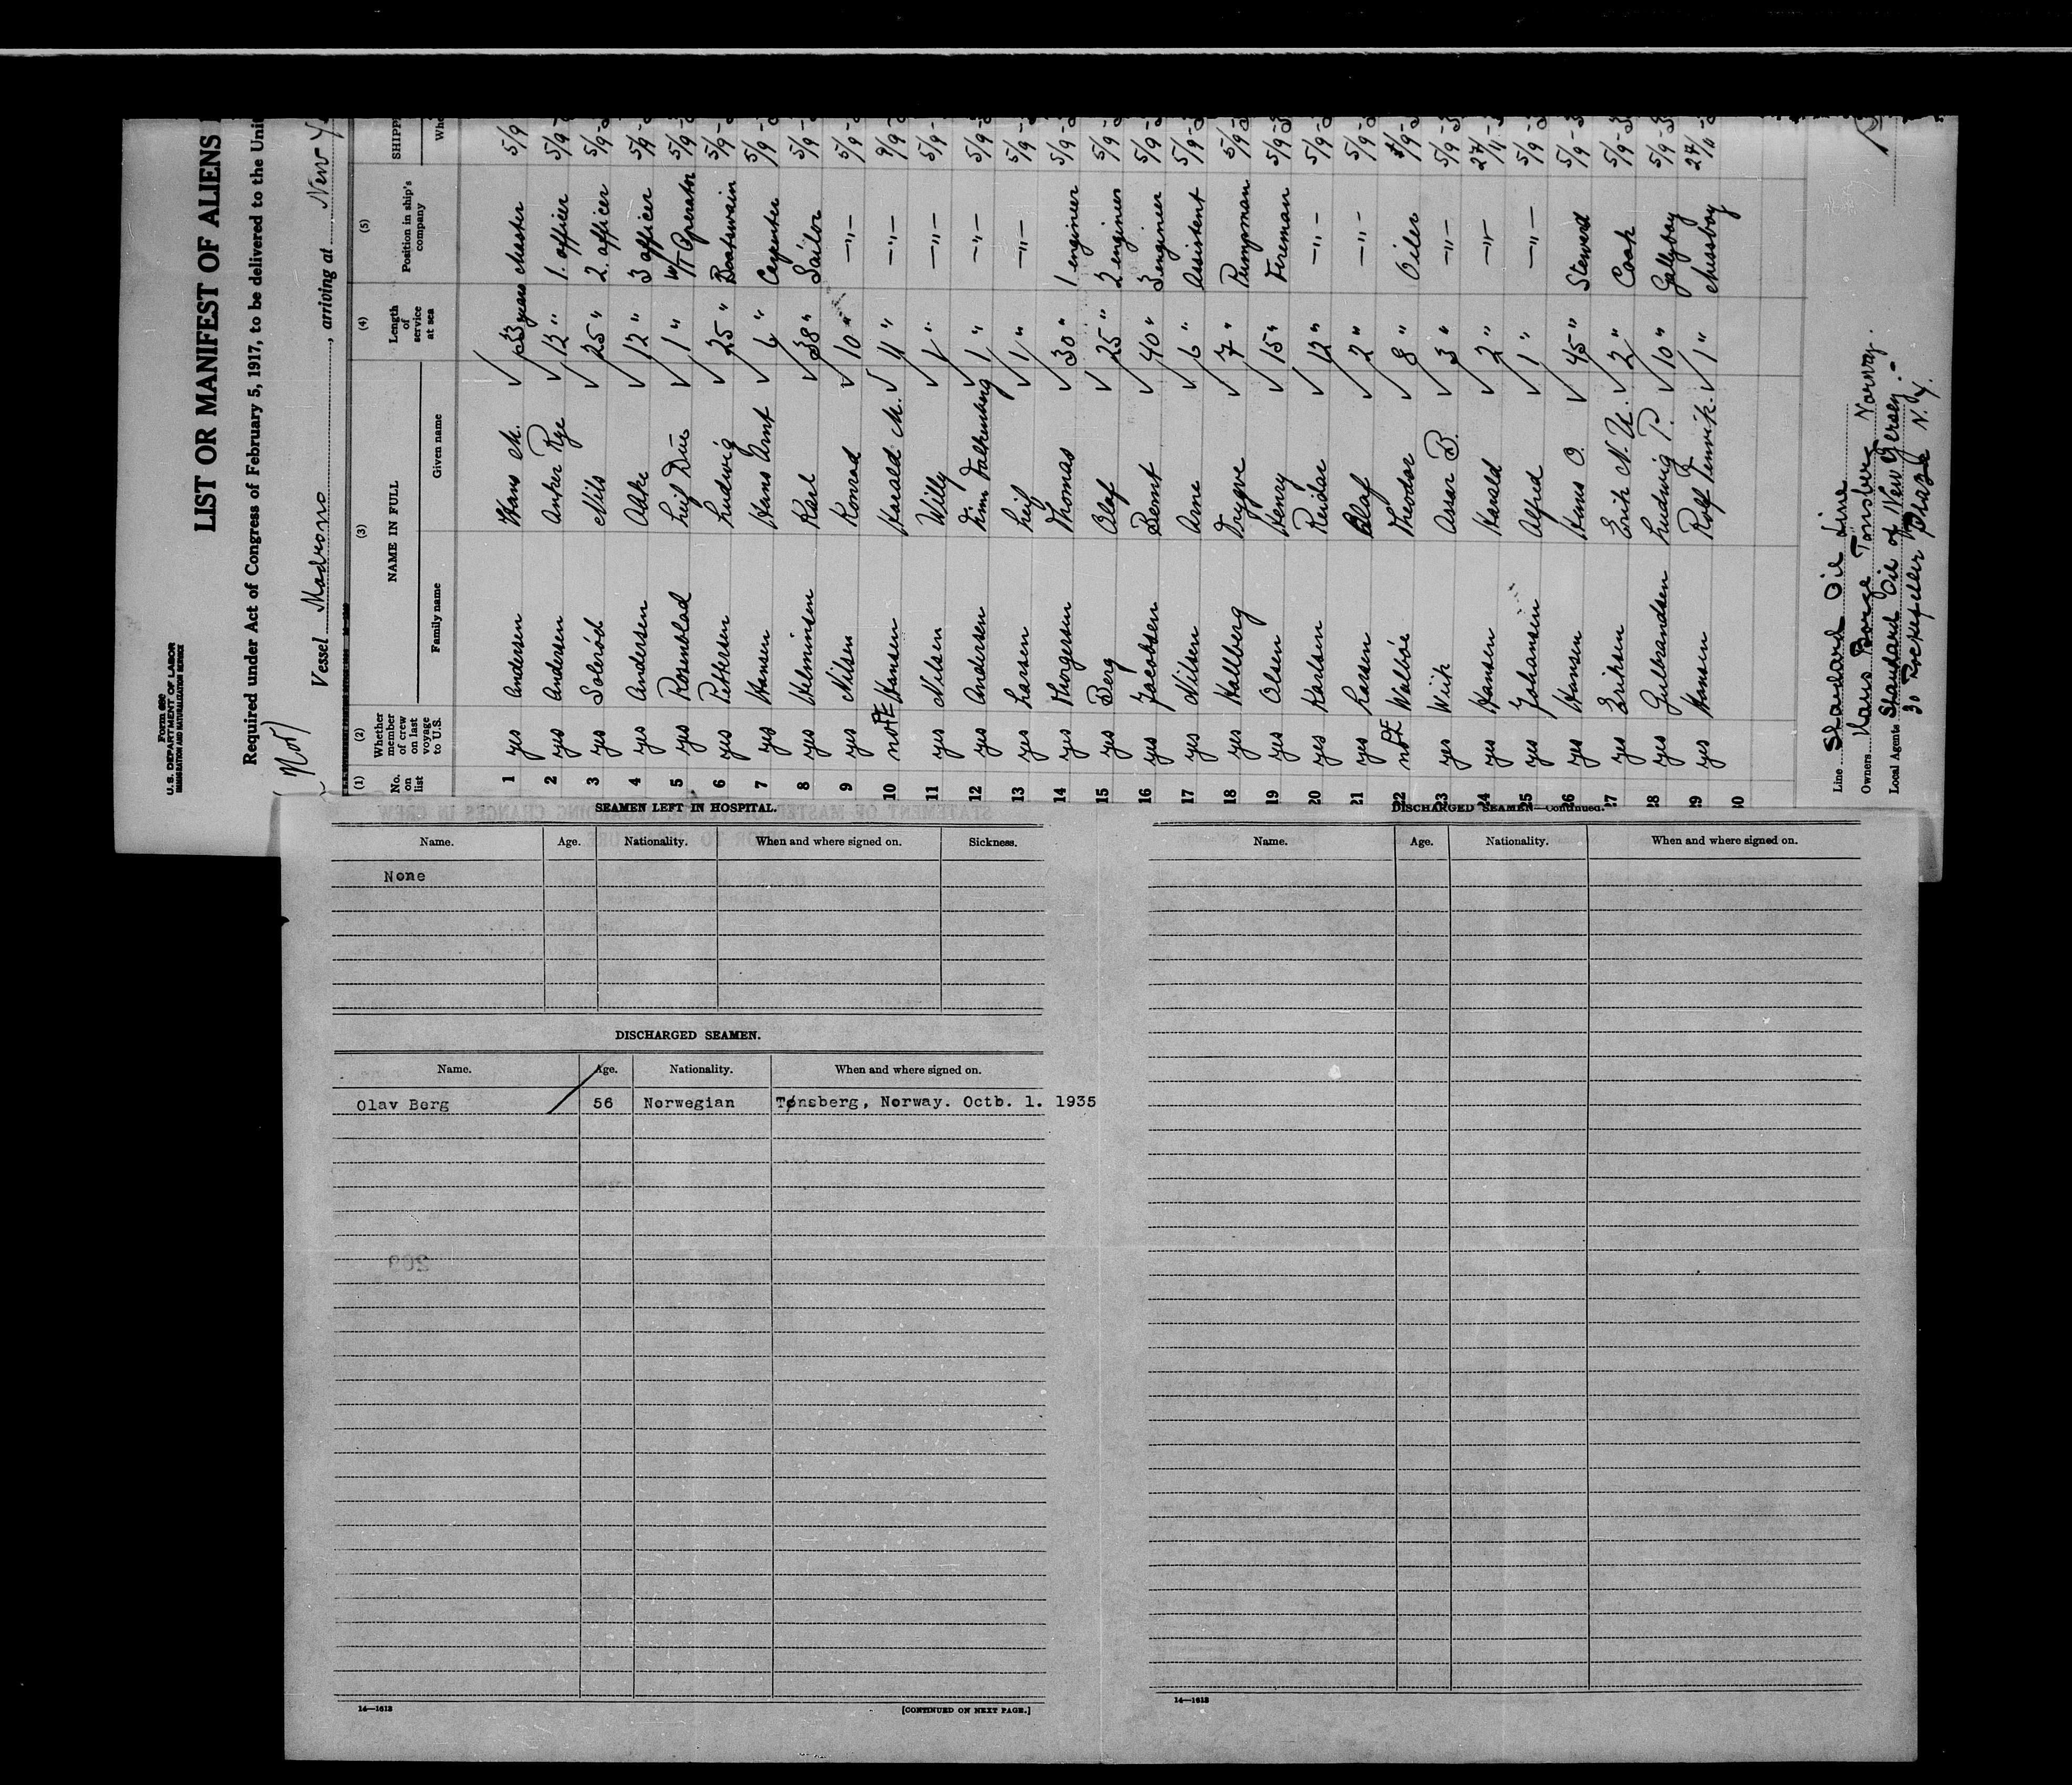 Form 680
U. S. DEPARTMENT OF LABOR
IMMIGRATION AND NATURALIZATION SERVICE
LIST OR MANIFEST OF ALIENS
Required under Act of Congress of February 5, 1917, to be delivered to the Unit
(Nor)
Vessel Madrono, arriving at New Y
(1) (2) (3) (4) (5)
No. on list Whether member of crew on last voyage to U.S. NAME IN FULL Family name Given name Length of service at sea Position in ship's company SHIPPE Whe
1 yes Andersen Hans M. 33 years Master 5/9
2 yes Andersen Anker Rye 12 " 1. officer 5/9
3 yes Solerød Nils 25 " 2. officer 5/9
4 yes Andersen Aake 12 " 3 officer 5/9
5 yes Rosenblad Leif Due 1 " W/T Operator 5/9
6 yes Pettersen Ludwig 25 " Boatswain 5/9
7 yes Hansen Hans Arnt 6 " Carpenter 5/9
8 yes Helminsen Karl 38 " Sailor 5/9
9 yes Nilsen Konrad 10 " —"— 5/9
10 no PE Hansen Harald M. 4 " —"— 9/9
11 yes Nilsen Willy 1 " —"— 5/9
12 yes Andersen Finn Falkenberg 1 " —"— 5/9
13 yes Larsen Leif 1 " —"— 5/9
14 yes Thorgersen Thomas 30 " 1 engineer 5/9
15 yes Berg Olaf 25 " 2 engineer 5/9
16 yes Jacobsen Bernt 40 " 3 engineer 5/9
17 yes Nilsen Arne 6 " Assistent 5/9
18 yes Hallberg Trygve 7 " Pumpman 5/9
19 yes Olsen Henry 15 " Fireman 5/9
20 yes Karlsen Reidar 12 " —"— 5/9
21 yes Larsen Olaf 2 " —"— 5/9
22 no PE Walbøe Theodor 8 " Oiler /9
23 yes Wiik Assar B. 3 " —"— 5/9
24 yes Hansen Harald 2 " —"— 27/11
25 yes Johansen Alfred 1 " —"— 5/9
26 yes Hansen Hans O. 45 " Steward 5/9
27 yes Eriksen Erik N. U. 2 " Cook 5/9
28 yes Gulbrandsen Ludwig P. 10 " Gallyboy 5/9
29 yes Hansen Rolf Fenwik. 1 " Messboy 27/11
30
Line Standard Oil Line
Owners Hans Borge Tønsberg Norway.
Local Agents Standard Oil of New Jersey.-
30 Rockefeller Plaza N. Y.
SEAMEN LEFT IN HOSPITAL.
Name. Age. Nationality. When and where signed on. Sickness.
None
DISCHARGED SEAMEN.
Name. Age. Nationality. When and where signed on.
Olav Berg 56 Norwegian Tønsberg, Norway. Octb. 1. 1935
14—1613
[CONTINUED ON NEXT PAGE.]
DISCHARGED SEAMEN—Continued.
Name. Age. Nationality. When and where signed on.
14—1613